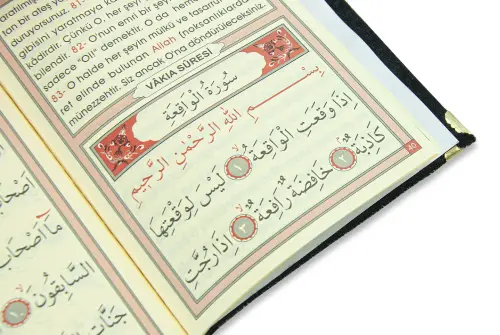 duruyorsunu
gibisini yaratmaya ka
kâdirdir. Çünkü O; her şeyi
bilendir. 82- O'nun emri bir şeyi
sadece "Ol!" demektir. O da hemen
83- O halde her şeyin mülkü ve tasarruf
elinde bulunan Allah (noksanlıklardan)
münezzehtir. Siz ancak O'na döndürüleceksiniz.
VÂKIA SÛRESİ
سُورَةُ الْوَاقِعَةِ
بِسْمِ اللَّهِ الرَّحْمَٰنِ الرَّحِيمِ
اِذَا وَقَعَتِ الْوَاقِعَةُ ١ لَيْسَ لِوَقْعَتِهَا
كَاذِبَةٌ ٢ خَافِضَةٌ رَافِعَةٌ ٣ اِذَا رُجَّتِ
40
اَصْحَابُ
مَٓا اَصْحَابُ
السَّابِقُونَ ١٠
جَنَّاتِ